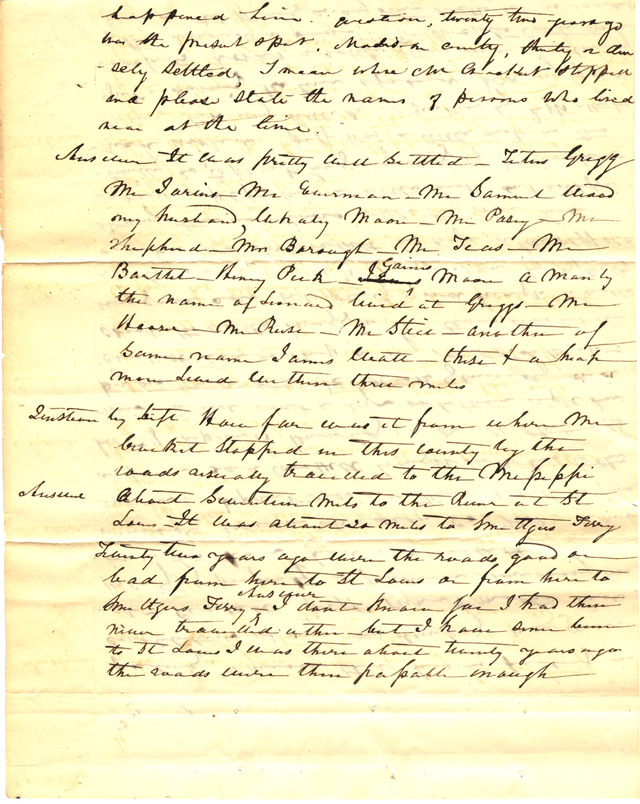 happened here. question, twenty two years ago
was the present spot, Madison county, thinly or den
sely settled, I mean where Mr Crocket stopped
and please state the names of persons who lived
near at the time.
Answer It was pretty well settled – Titus Gregg
Mr Jarius – Mr – Mr Samuel
my husband, Moore – Mr Posey – Mr
Shepherd – Mr Borough – Mr Teas – Mr
Bartlet – Henry Peck – Gaines Moore a Man by
the name of Leonard lived at Greggs – Mr
– Mr – Mr Steel – another of
same name James – these & a heap
more lived within three miles
Question by deft How far was it from where Mr
Crocket stopped in this county by the
roads usually travelled to the Missisippi
Answer About Seventeen miles to the River at St
Louis It was about 20 miles to Smeltzers Ferry
Twenty two years ago were the roads good or
bad from here to St Louis or from here to
Smeltzers Ferry – Answer I dont know for I had then
never travelled either – but I have since been
to St Louis I was there about twenty years ago
the roads were then passable enough